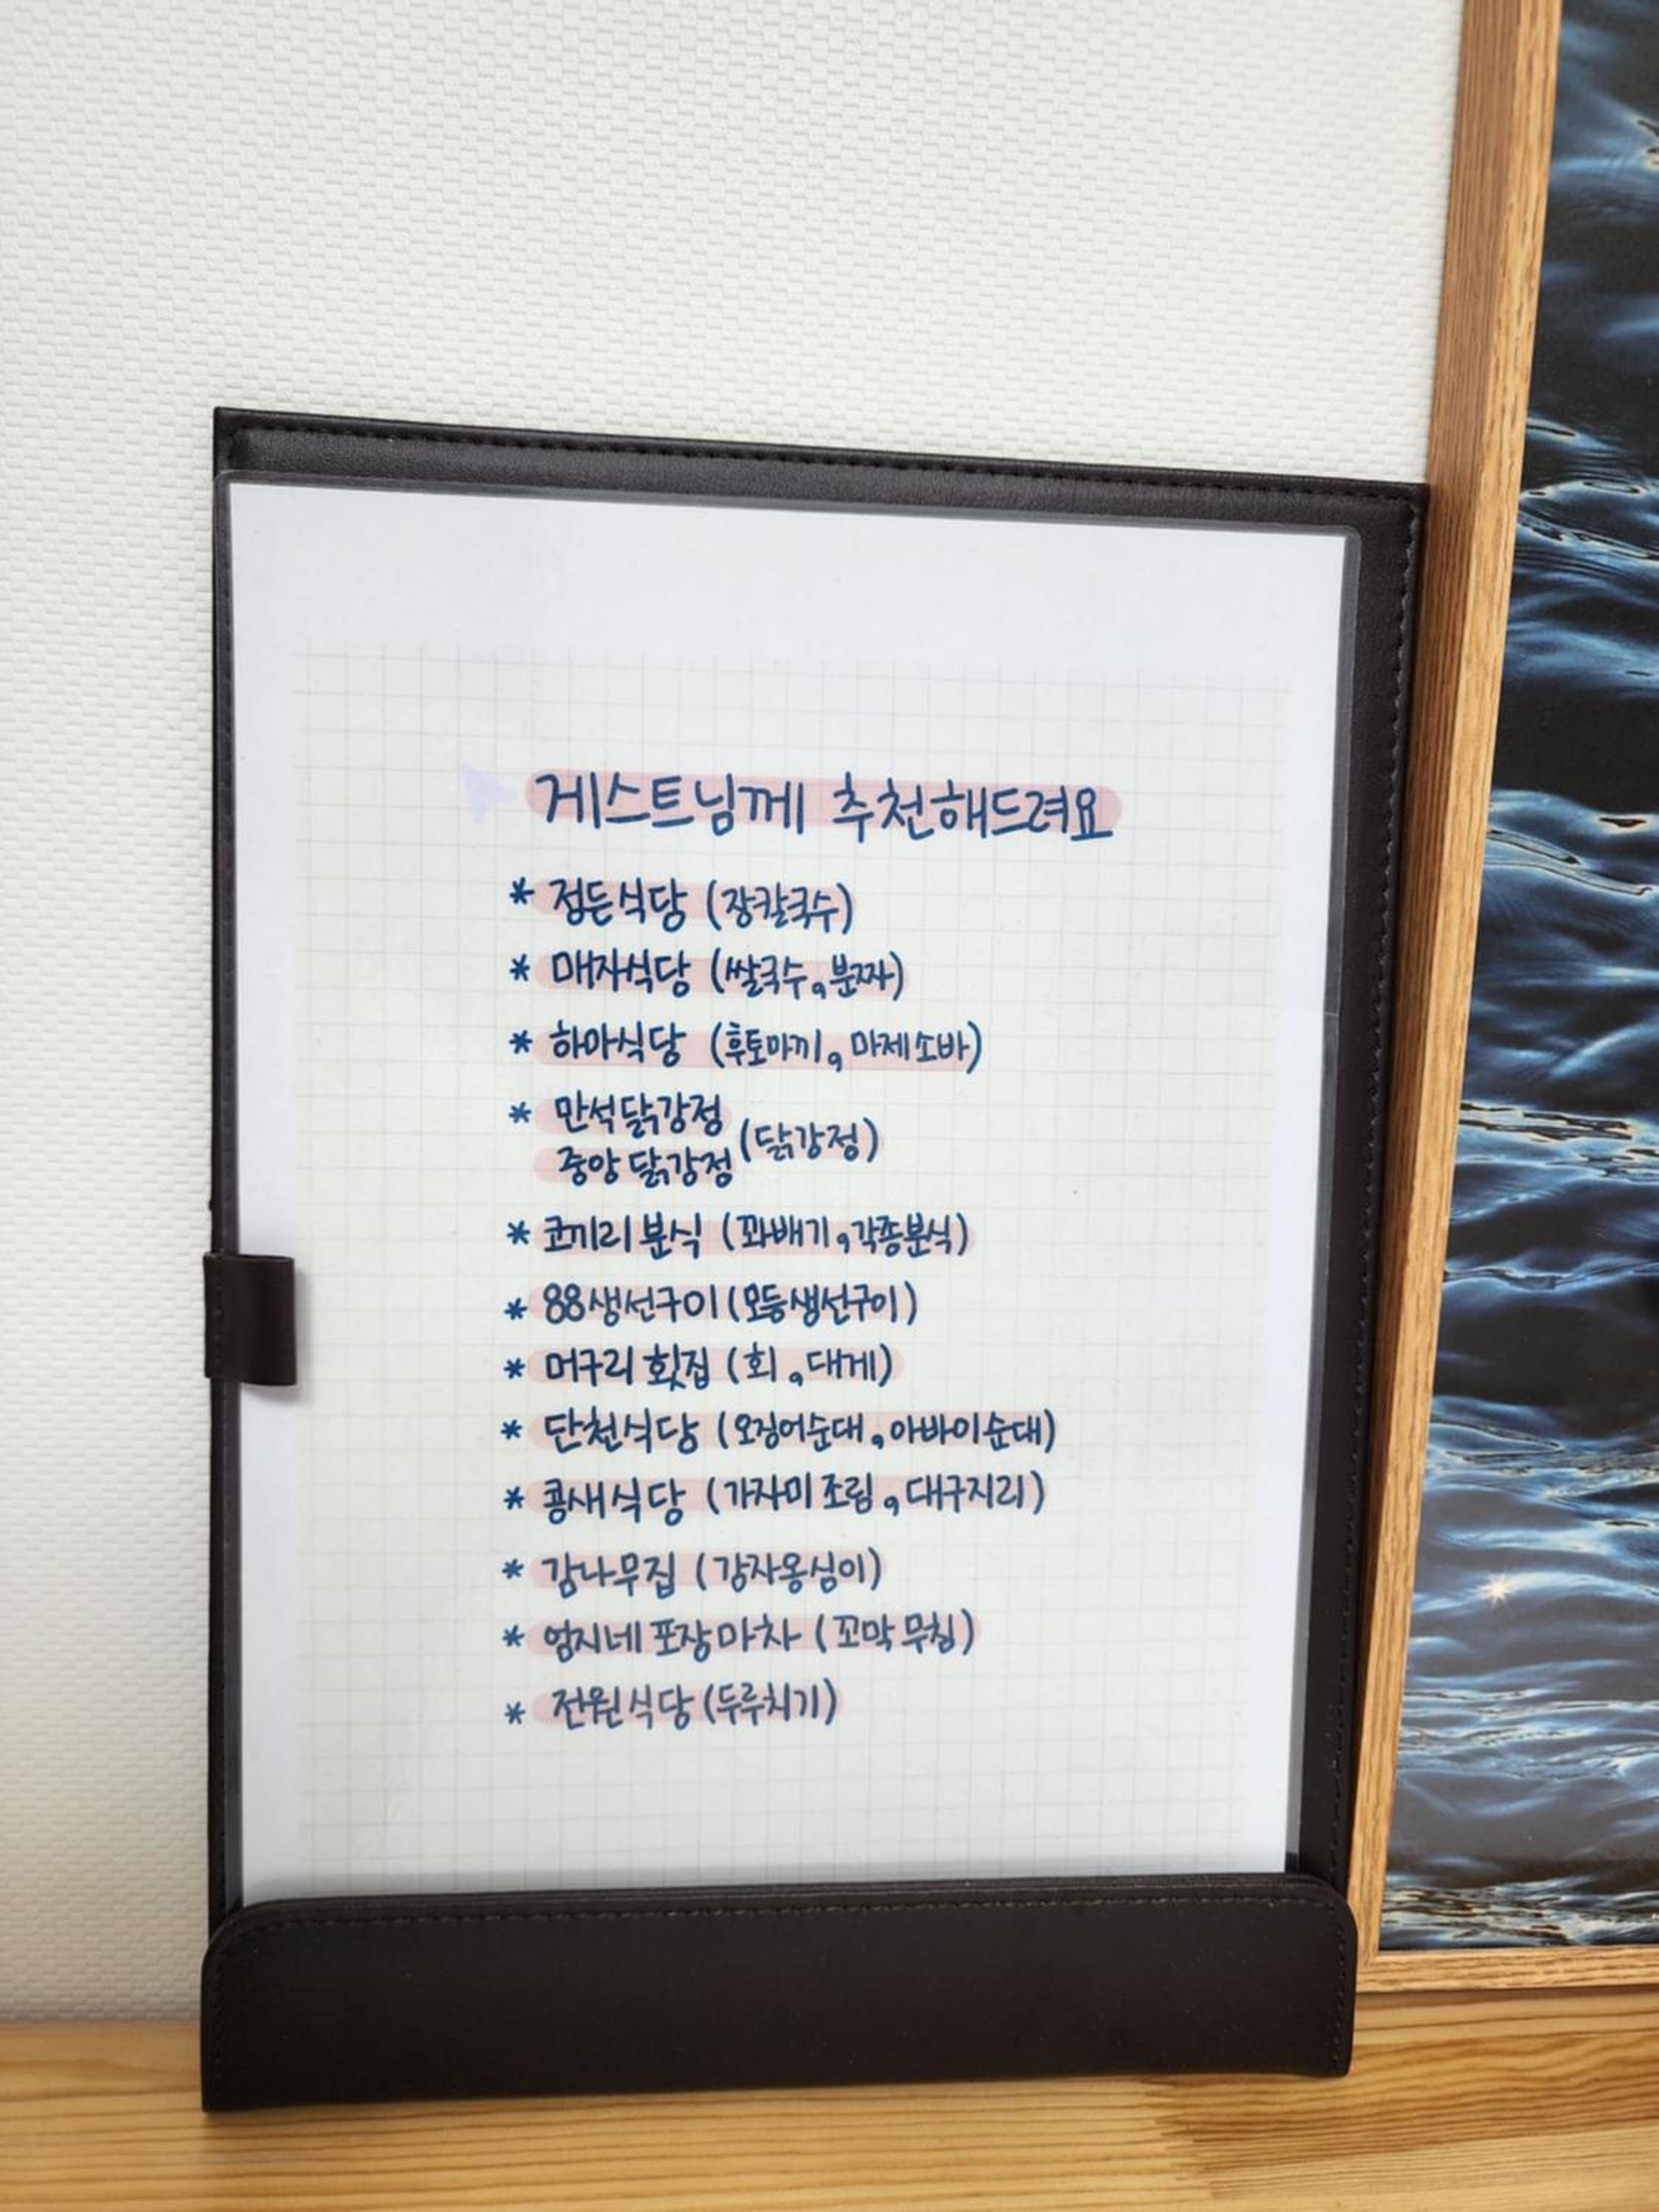 게스트님께 추천해드려요
* 점든식당 (장칼국수)
* 매자식당 (쌀국수,분짜)
* 하마식당 (후토마끼, 마제소바)
* 만석닭강정
중앙닭강정 (닭강정)
* 코끼리분식 (꽈배기,각종분식)
* 88생선구이 (모듬생선구이)
* 머구리횟집 (회,대게)
* 단천식당 (오징어순대,아바이순대)
* 콩새식당 (가자미조림,대구지리)
* 감나무집 (감자옹심이)
* 엄지네포장마차 (꼬막무침)
* 전원식당 (두루치기)